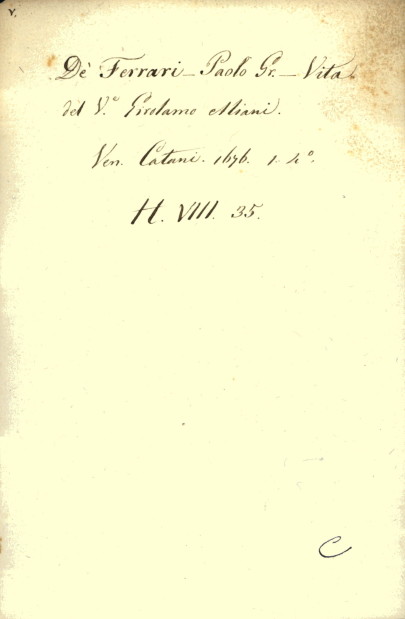 V.
Dè Ferrari – Paolo Gr. – Vita
del V.º Girolamo Miani.
Ven. Catani. 1676. 1. 4º.
H. VIII. 35.
C